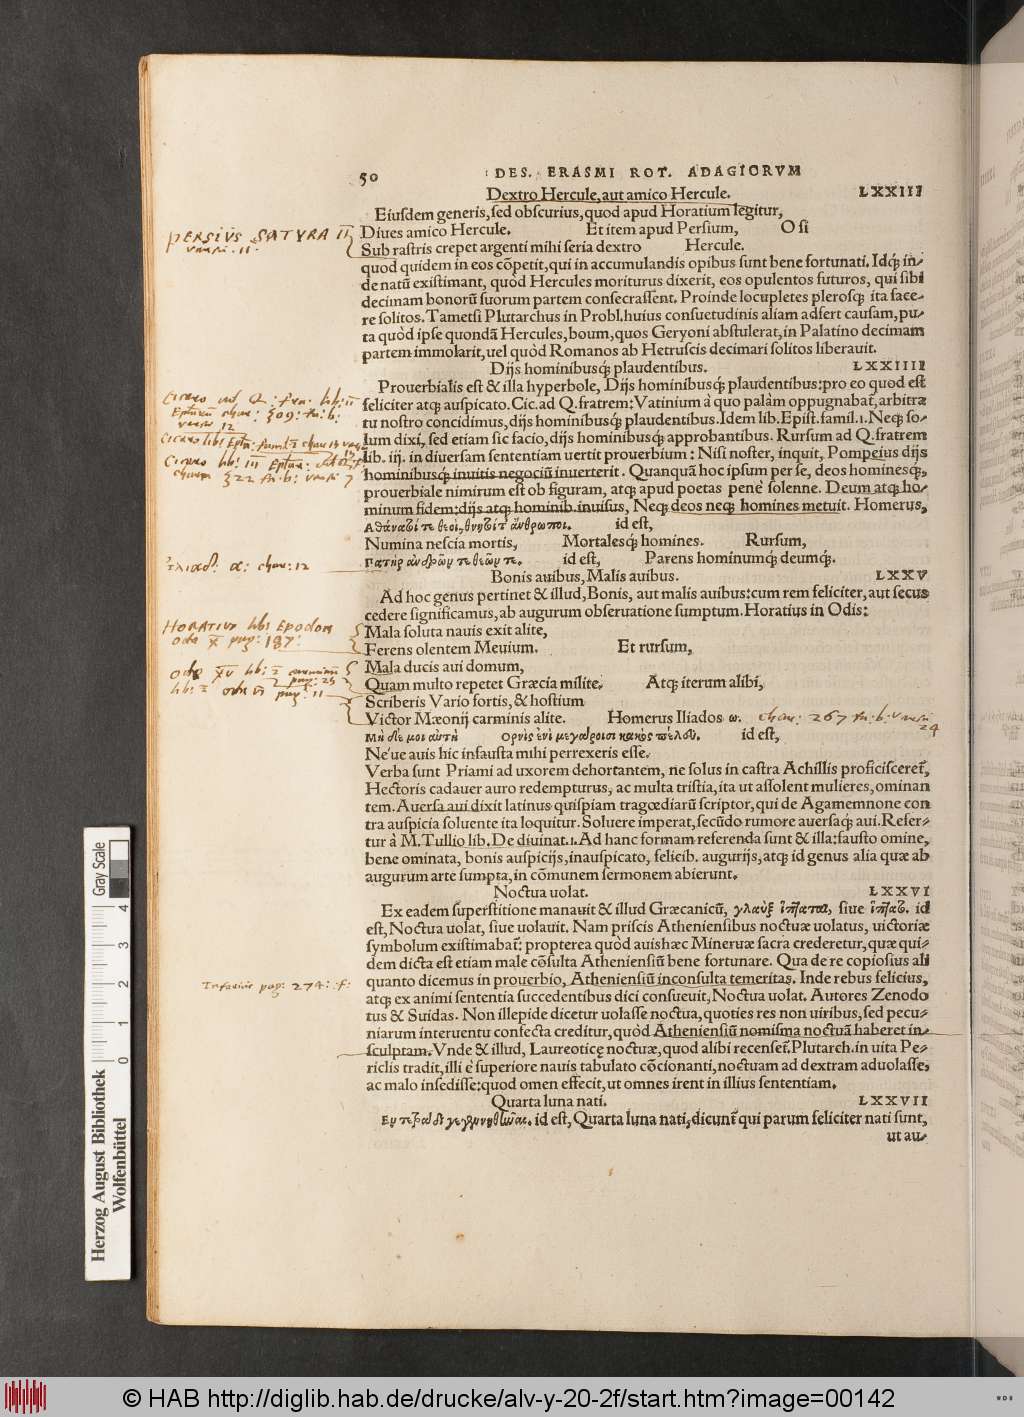 50 DES. ERASMI ROT. ADAGIORVM
Dextro Hercule, aut amico Hercule. LXXIII
Eiuſdem generis, ſed obſcurius, quod apud Horatium legitur,
Diues amico Hercule. Et item apud Perſium, O ſi
Sub raſtris crepet argenti mihi ſeria dextro Hercule.
PERSIUS SATYRA II
quod quidem in eos cõpetit, qui in accumulandis opibus ſunt bene fortunati. Idq́; in-
de natũ exiſtimant, quòd Hercules moriturus dixerit, eos opulentos futuros, qui ſibi
decimam bonorũ ſuorum partem conſecraſſent. Proinde locupletes pleroſq; ita face-
re ſolitos. Tametſi Plutarchus in Probl. huius conſuetudinis aliam adfert cauſam, pu-
ta quòd ipſe quondã Hercules, boum, quos Geryoni abſtulerat, in Palatino decimam
partem immolarit, uel quòd Romanos ab Hetruſcis decimari ſolitos liberauit.
Dijs hominibusq́; plaudentibus. LXXIIII
Prouerbialis eſt & illa hyperbole, Dijs hominibusq́; plaudentibus: pro eo quod eſt
feliciter atq; auſpicato. Cic. ad Q. fratrem: Vatinium à quo palàm oppugnabat᷑, arbitra
tu noſtro concidimus, dijs hominibusq́; plaudentibus. Idem lib. Epiſt. famil. 1. Neq; ſo-
lum dixi, ſed etiam ſic facio, dijs hominibusq́; approbantibus. Rurſum ad Q. fratrem
lib. iij. in diuerſam ſententiam uertit prouerbium: Niſi noſter, inquit, Pompeius dijs
hominibusq́; inuitis negociũ inuerterit. Quanquã hoc ipſum per ſe, deos hominesq́;,
prouerbiale nimirum eſt ob figuram, atq; apud poetas penè ſolenne. Deum atq; ho-
minum fidem: dijs atq; hominib. inuiſus, Neq; deos neq; homines metuit. Homerus,
Ἀθάνατοί τε θεοὶ, θνητοί τ' ἄνθρωποι. id eſt,
Numina neſcia mortis, Mortalesq́; homines. Rurſum,
πατὴρ ἀνδρῶν τε θεῶν τε. id eſt, Parens hominumq́; deumq́;.
Bonis auibus, Malis auibus. LXXV
Ad hoc genus pertinet & illud, Bonis, aut malis auibus: cum rem feliciter, aut ſecus
cedere ſignificamus, ab augurum obſeruatione ſumptum. Horatius in Odis:
Mala ſoluta nauis exit alite,
HORATIUS lib: EPODON
Ferens olentem Meuium. Et rurſum,
Mala ducis aui domum,
Quam multo repetet Græcia milite. Atq; iterum alibi,
Scriberis Vario fortis, & hoſtium
Victor Mæonij carminis alite. Homerus Iliados ω.
Μὴ δέ μοι αὐτὴ ὄρνις ἐνὶ μεγάροισι κακὸς πέλου. id eſt,
Ne'ue auis hic infauſta mihi perrexeris eſſe.
Verba ſunt Priami ad uxorem dehortantem, ne ſolus in caſtra Achillis proficiſceret᷑,
Hectoris cadauer auro redempturus, ac multa triſtia, ita ut aſſolent mulieres, ominan
tem. Auerſa aui dixit latinus quiſpiam tragœdiarũ ſcriptor, qui de Agamemnone con
tra auſpicia ſoluente ita loquitur. Soluere imperat, ſecũdo rumore auerſaq́; aui. Refer-
tur à M. Tullio lib. De diuinat. 1. Ad hanc formam referenda ſunt & illa: fauſto omine,
bene ominata, bonis auſpicijs, inauſpicato, felicib. augurijs, atq; id genus alia quæ ab
augurum arte ſumpta, in cõmunem ſermonem abierunt.
Noctua uolat. LXXVI
Ex eadem ſuperſtitione manauit & illud Græcanicũ, γλαὺξ ἵπταται, ſiue ἵπτατο. id
eſt, Noctua uolat, ſiue uolauit. Nam priſcis Athenienſibus noctuæ uolatus, uictoriæ
ſymbolum exiſtimabat᷑: propterea quòd auis hæc Mineruæ ſacra crederetur, quæ qui-
dem dicta eſt etiam male cõſulta Athenienſiũ bene fortunare. Qua de re copioſius ali
quanto dicemus in prouerbio, Athenienſiũ inconſulta temeritas. Inde rebus felicius,
Inferius pag: 274: f:
atq; ex animi ſententia ſuccedentibus dici conſueuit, Noctua uolat. Autores Zenodo
tus & Suidas. Non illepide dicetur uolaſſe noctua, quoties res non uiribus, ſed pecu-
niarum interuentu confecta creditur, quòd Athenienſiũ nomiſma noctuã haberet in-
ſculptam. Vnde & illud, Laureoticę noctuæ, quod alibi recenſet᷑. Plutarch. in uita Pe-
riclis tradit, illi è ſuperiore nauis tabulato cõcionanti, noctuam ad dextram aduolaſſe,
ac malo inſediſſe: quod omen effecit, ut omnes irent in illius ſententiam.
Quarta luna nati. LXXVII
Ἐν τετράδι γεγεννηθῶσι. id eſt, Quarta luna nati, dicunt᷑ qui parum feliciter nati ſunt,
ut au-
Herzog August Bibliothek
Wolfenbüttel
Gray Scale
0 1 2 3 4
© HAB http://diglib.hab.de/drucke/alv-y-20-2f/start.htm?image=00142